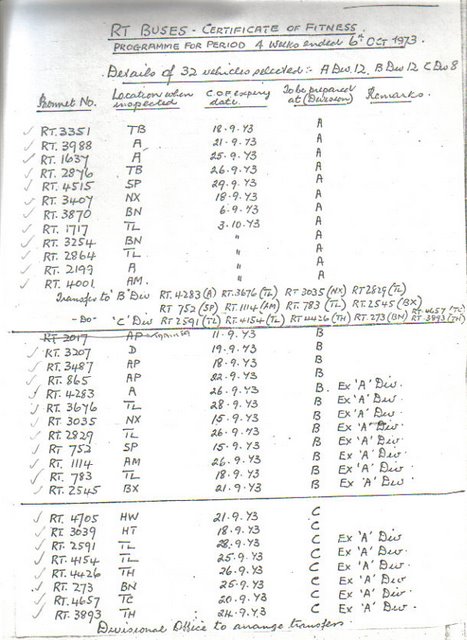 RT BUSES - CERTIFICATE OF FITNESS
PROGRAMME FOR PERIOD 4 WEEKS ENDED 6th OCT 1973.
Details of 32 vehicles selected:- A Div. 12, B Div 12 C Div 8
Bonnet No. Location when inspected C OF expiry date. To be prepared at (Division) Remarks.
✓ RT. 3351 TB 18.9.73 A
✓ RT. 3988 A 21.9.73 A
✓ RT. 1637 A 25.9.73 A
✓ RT. 2876 TB 26.9.73 A
✓ RT. 4515 SP 29.9.73 A
✓ RT. 3407 NX 18.9.73 A
✓ RT. 3870 BN 6.9.73 A
✓ RT. 1717 TL 3.10.73 A
✓ RT. 3254 BN " A
✓ RT. 2864 TL " A
✓ RT. 2199 A " A
✓ RT. 4001 AM. " A
Transfer to 'B' Div RT. 4283 (A) RT. 3676 (TL) RT 3035 (NX) RT 2829 (TL)
RT 752 (SP) RT. 1114 (AM) RT. 783 (TL) RT. 2545 (BX)
-Do- 'C' Div RT 2591 (TL) RT. 4154 (TL) RT 4426 (TH) RT. 273 (BN) RT. 4657 (TC) RT. 3893 (TH)
RT 2017 AP 11.9.73 B
✓ RT. 3207 D 19.9.73 B
✓ RT. 3487 AP 18.9.73 B
✓ RT. 865 AP 22.9.73 B
✓ RT. 4283 A 26.9.73 B. Ex 'A' Div.
✓ RT. 3676 TL 28.9.73 B Ex 'A' Div.
✓ RT. 3035 NX 15.9.73 B Ex 'A' Div.
✓ RT. 2829 TL 26.9.73 B Ex 'A' Div.
✓ RT 752 SP 15.9.73 B Ex 'A' Div.
✓ RT. 1114 AM 26.9.73 B Ex 'A' Div.
✓ RT. 783 TL 18.9.73 B Ex 'A' Div.
✓ RT. 2545 BX 21.9.73 B Ex 'A' Div
✓ RT. 4705 HW 21.9.73 C
✓ RT. 3039 HT 18.9.73 C
✓ RT. 2591 TL 28.9.73 C Ex 'A' Div
✓ RT. 4154 TL 25.9.73 C Ex 'A' Div
✓ RT. 4426 TH 26.9.73 C Ex 'A' Div
✓ RT. 273 BN 25.9.73 C Ex 'A' Div
✓ RT. 4657 TC 20.9.73 C Ex 'A' Div
✓ RT. 3893 TH 24.9.73 C Ex 'A' Div
Divisional Office to arrange transfers.